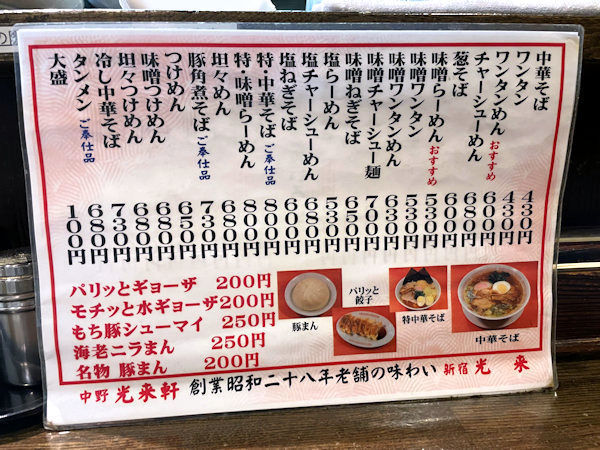 中華そば 430円
ワンタン 430円
ワンタンめん おすすめ 600円
チャーシューめん 680円
葱そば 600円
味噌らーめん おすすめ 530円
味噌ワンタン 530円
味噌ワンタンめん 630円
味噌チャーシュー麺 700円
味噌ねぎそば 650円
塩らーめん 530円
塩チャーシューめん 680円
塩ねぎそば 680円
特・中華そば ご奉仕品 800円
特・味噌らーめん 800円
坦々めん 680円
豚角煮そば ご奉仕品 730円
つけめん 650円
味噌つけめん 680円
坦々つけめん 680円
冷し中華そば 730円
タンメン ご奉仕品 680円
大盛 100円
パリッとギョーザ 200円
モチッと水ギョーザ 200円
もち豚シューマイ 250円
海老ニラまん 250円
名物 豚まん 200円
豚まん
パリッと
餃子
特中華そば
中華そば
中野 光来軒 創業昭和二十八年老舗の味わい 新宿 光来